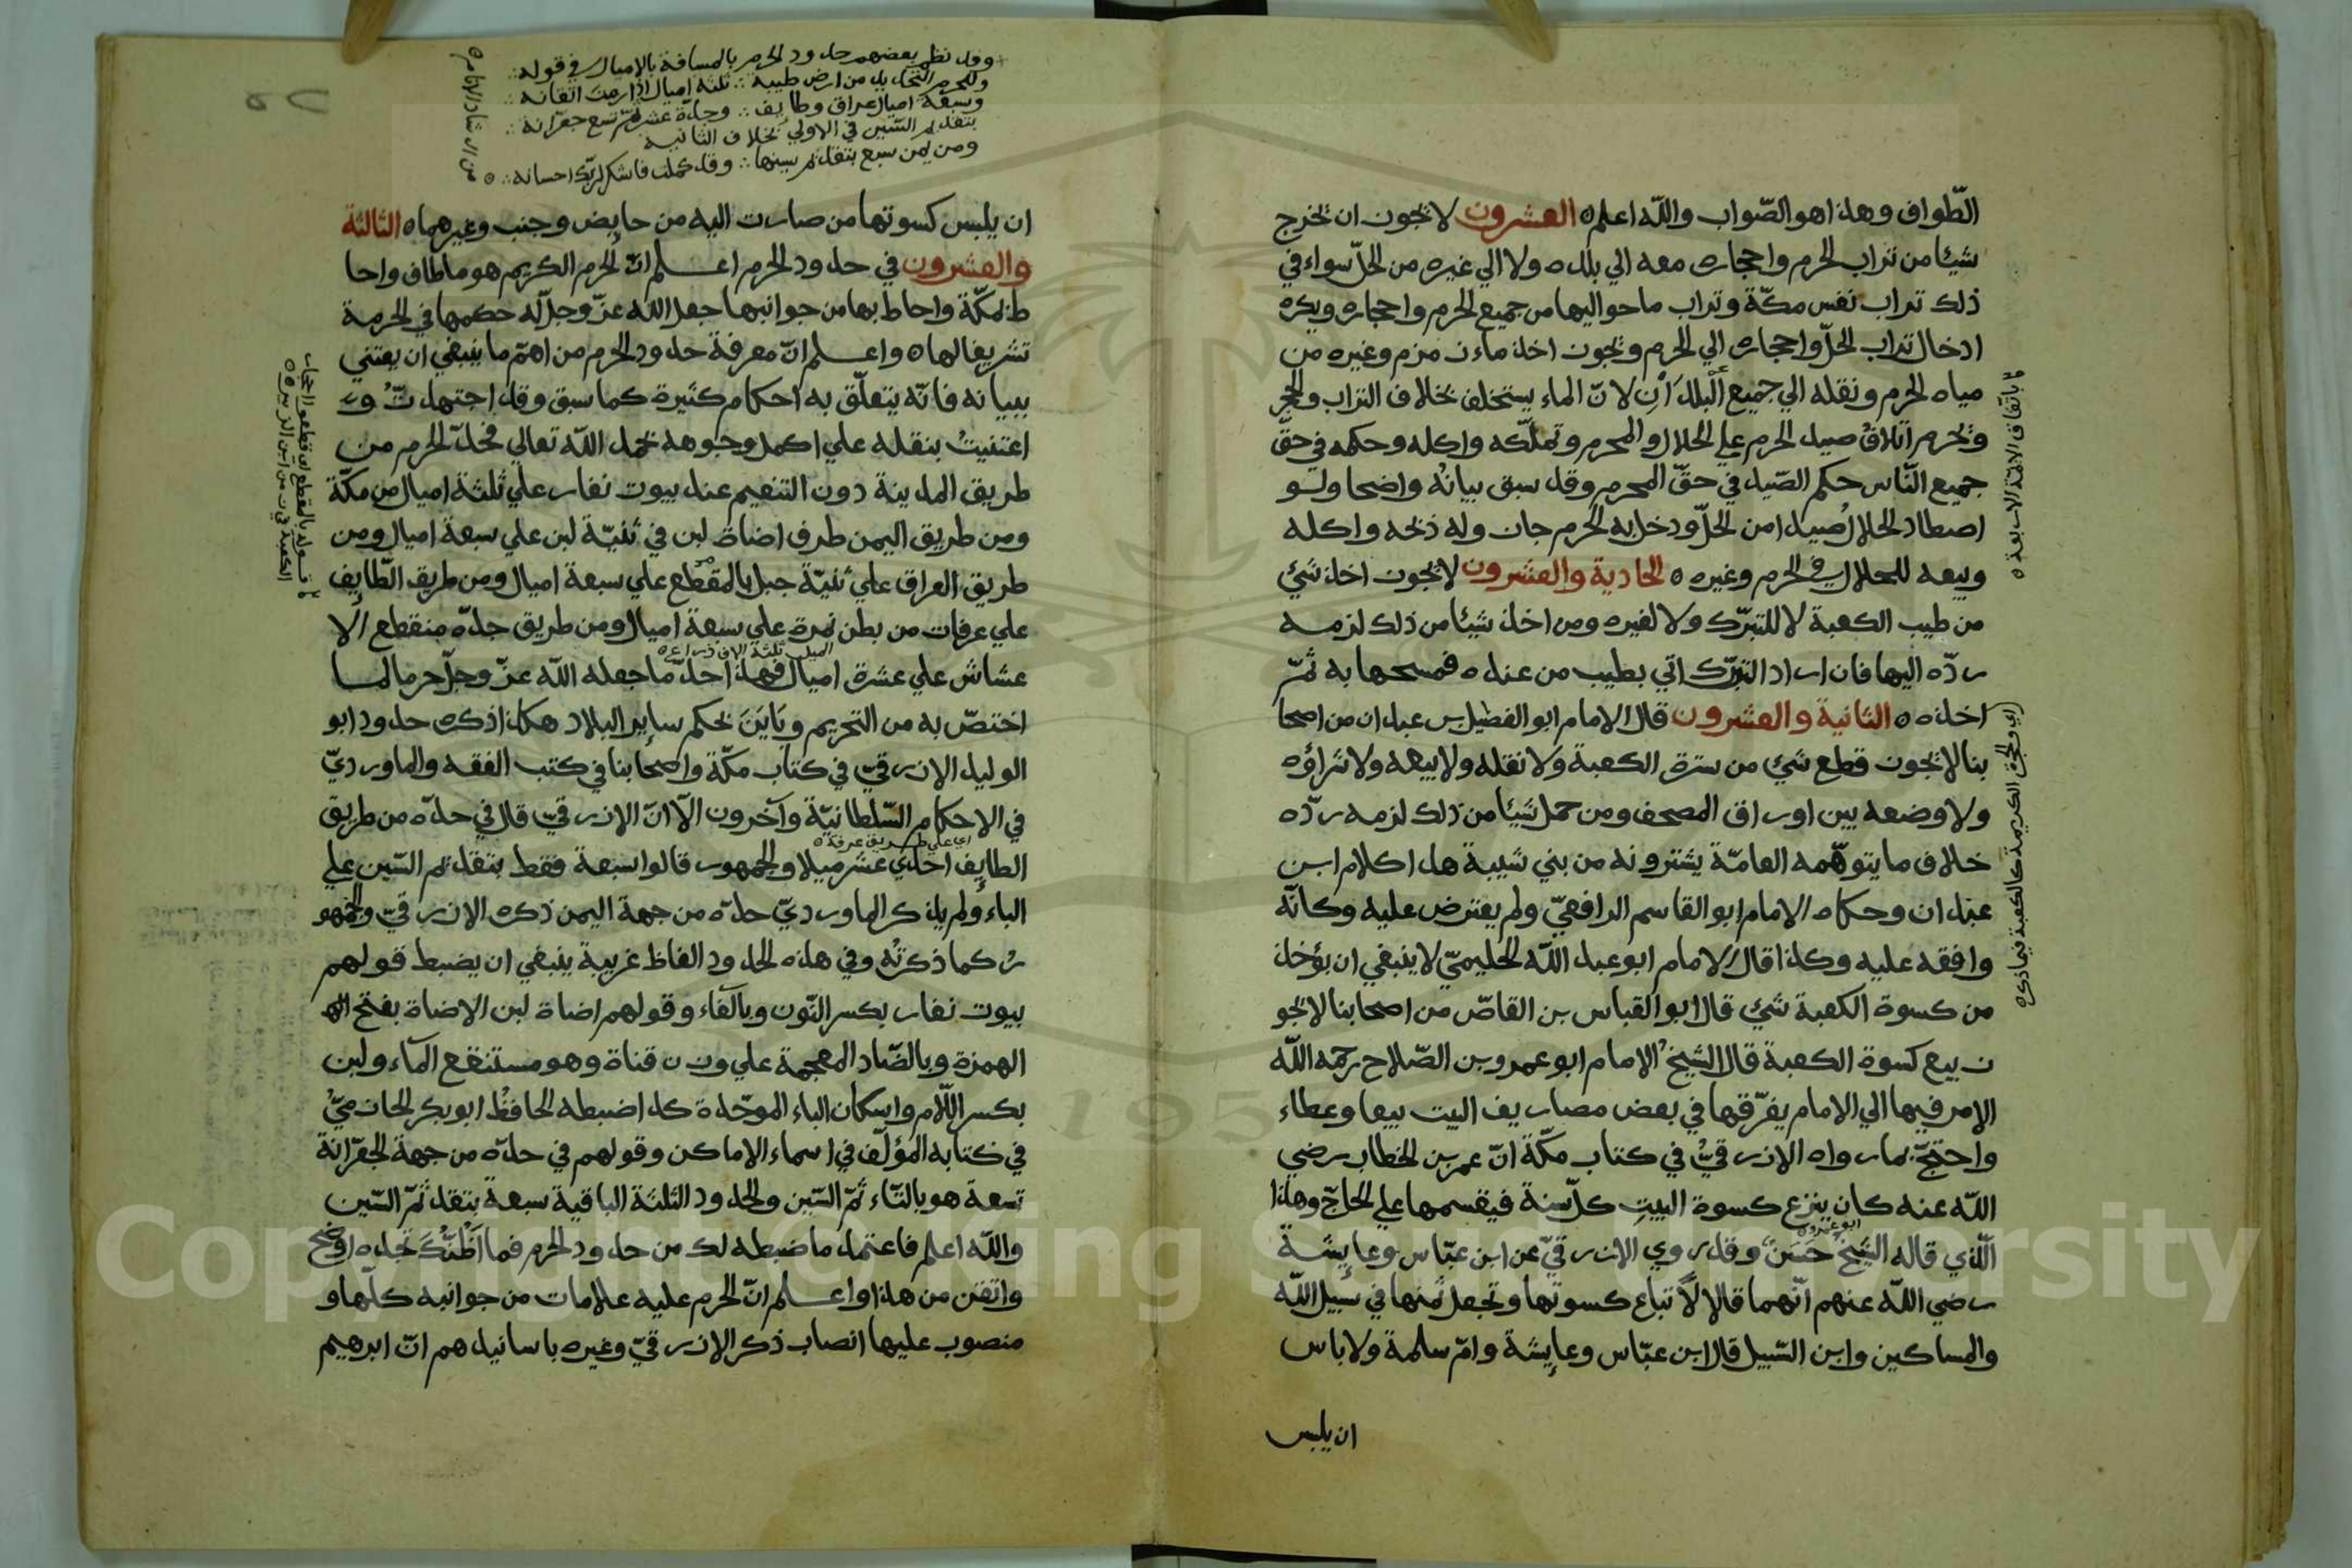 الطّواف وهذا هو الصّواب واللّه اعلم ه العشرون لا يجوز ان يخرج
شيئا من تراب الحرم واحجاره معه الي بلده ولا الي غيره من الحلّ سواء في
ذلك تراب نفس مكّة وتراب ما حواليها من جميع الحرم واحجاره ويكره
ادخال تراب الحلّ واحجاره الي الحرم ويجوز اخذ ماء زمزم وغيره من
مياه الحرم ونقله الي جميع البلدان لانّ الماء يستخلف بخلاف التراب والحجر
ويحرم اتلاف صيد الحرم علي الحلال والمحرم وتملّكه واكله وحكمه في حقّ
جميع النّاس حكم الصّيد في حقّ المحرم وقد سبق بيانه واضحا ولو
اصطاد الحلال صيدا من الحلّ ودخل به الحرم جاز وله ذبحه واكله
وبيعه للحلال في الحرم وغيره ه الحادية والعشرون لا يجوز اخذ شيئ
من طيب الكعبة لا للتبرّك ولا لغيره ومن اخذ شيئا من ذلك لزمه
ردّه اليها فان اراد التبرّك اتي بطيب من عنده فمسحها به ثمّ
اخذه ه الثانية والعشرون قال الامام ابو الفضل بن عبدان من اصحا
بنا لا يجوز قطع شيئ من سترة الكعبة ولا نقله ولا بيعه ولا شراؤه
ولا وضعه بين اوراق المصحف ومن حمل شيئا من ذلك لزمه ردّه
خلاف ما يتوهّمه العامّة يشترونه من بني شيبة هذا كلام ابن
عبدان وحكاه الامام ابو القاسم الرافعيّ ولم يعترض عليه وكانّه
وافقه عليه وكذا قال الامام ابو عبد اللّه الحليميّ لا ينبغي ان يؤخذ
من كسوة الكعبة شيئ قال ابو العباس بن القاصّ من اصحابنا لا يجو
ز بيع كسوة الكعبة قال الشيخ الامام ابو عمرو بن الصّلاح رحمه اللّه
الامر فيها الي الامام يفرّقها في بعض مصاريف البيت بيعا وعطاء
واحتجّ بما رواه الازرقيّ في كتاب مكّة انّ عمر بن الخطاب رضي
اللّه عنه كان ينزع كسوة البيت كلّ سنة فيقسمها علي الحاجّ وهذا
الّذي قاله الشيخ ابو عمرو حسن وقد روي الازرقيّ عن ابن عبّاس وعايشة
رضي اللّه عنهم انّهما قالا لا تباع كسوتها وتجعل ثمنها في سبيل اللّه
والمساكين وابن السّبيل قال ابن عبّاس وعايشة وامّ سلمة ولا باس
ان يلبس
باتفاق الائمة الاربعة ه
وقد نظم بعضهم حدود الحرم بالمسافة بالاميال في قوله
وللحرم التحديد من ارض طيبة ∴ ثلثة اميال اذا رمت اتقانه
وسبعة اميال عراق وطايف ∴ وجدّة عشر ثمّ تسع جعرّانه
بتقديم السّين في الاولي بخلاف الثانية
ومن يمن سبع بتقديم سينها ∴ وقد كملت فاشكر لربّك احسانه ∴ ه
ان يلبس كسوتها من صارت اليه من حايض وجنب وغيرهما ه الثالثة
والعشرون في حدود الحرم اعلم انّ الحرم الكريم هو ما طاف واحا
ط بمكّة واحاط بها من جوانبها جعل اللّه عزّ وجلّ له حكمها في الحرمة
تشريفا لها ه واعلم انّ معرفة حدود الحرم من اهمّ ما ينبغي ان يعتني
ببيانه فانّه يتعلّق به احكام كثيرة كما سبق وقد اجتهدتّ و
اعتنيت بنقله علي اكمل وجوهه بحمد اللّه تعالي فحدّ الحرم من
طريق المدينة دون التنعيم عند بيوت نفار علي ثلثة اميال من مكّة
ومن طريق اليمن طرف اضاة لبن في ثنيّة لبن علي سبعة اميال ومن
طريق العراق علي ثنيّة جبل بالمقطع علي سبعة اميال ومن طريق الطّايف
علي عرفات من بطن نمرة علي سبعة اميال ومن طريق جدّه منقطع الا
الميل ثلثة الاف ذراع ه
عشاش علي عشرة اميال فهذا حدّ ما جعله اللّه عزّ وجلّ حرما لما
اختصّ به من التحريم وباين بحكم ساير البلاد هكذا ذكره حدود ابو
الوليد الازرقيّ في كتاب مكّة واصحابنا في كتب الفقه والماورديّ
في الاحكام السّلطانيّة وآخرون الّا انّ الازرقيّ قال في حدّه من طريق
اي علي طريق عرفة ه
الطايف احدي عشر ميلا والجمهور قالوا سبعة فقط بتقديم السّين علي
الباء ولم يذكر الماورديّ حدّه من جهة اليمن ذكره الازرقيّ والجمهو
ر كما ذكرته وفي هذه الحدود الفاظ غريبة ينبغي ان يضبط قولهم
بيوت نفار بكسر النّون وبالفاء وقولهم اضاة لبن الاضاة بفتح اله
الهمزة وبالضّاد المعجمة علي وزن قناة وهو مستنقع الماء ولبن
بكسر اللّام واسكان الباء الموحّدة كذا ضبطه الحافظ ابو بكر الحازميّ
في كتابه المؤلّف في اسماء الاماكن وقولهم في حدّه من جهة الجعرّانة
تسعة هو بالتّاء ثمّ السّين والحدود الثلثة الباقية سبعة بتقديم السّين
واللّه اعلم فاعتمد ما ضبطه لك من حدود الحرم فما اظنّك تجده اوضح
واتقن من هذا واعلم انّ الحرم عليه علامات من جوانبه كلّها و
منصوب عليها انصاب ذكر الازرقيّ وغيره باسانيدهم انّ ابرهيم
Copyright © King Saud University
195